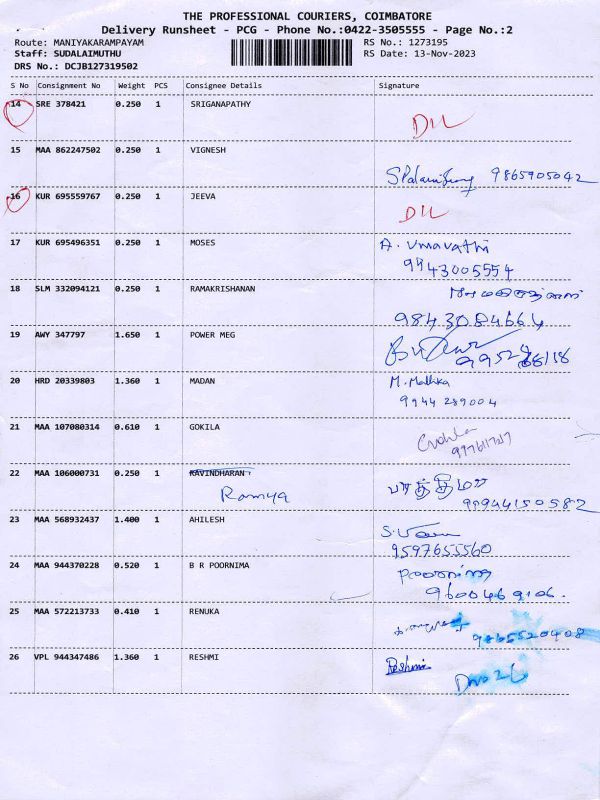 THE PROFESSIONAL COURIERS, COIMBATORE
Delivery Runsheet - PCG - Phone No.:0422-3505555 - Page No.:2
Route: MANIYAKARAMPAYAM RS No.: 1273195
Staff: SUDALAIMUTHU RS Date: 13-Nov-2023
DRS No.: DCJB127319502
S No Consignment No Weight PCS Consignee Details Signature
14 SRE 378421 0.250 1 SRIGANAPATHY
DIL
15 MAA 862247502 0.250 1 VIGNESH
9865905042
16 KUR 695559767 0.250 1 JEEVA
DIL
17 KUR 695496351 0.250 1 MOSES A. Umavathi
9943005554
18 SLM 332094121 0.250 1 RAMAKRISHANAN
9843084664
19 AWY 347797 1.650 1 POWER MEG
20 HRD 20339803 1.360 1 MADAN M. Mallika
9944 289004
21 MAA 107080314 0.610 1 GOKILA
22 MAA 106000731 0.250 1 KAVINDHARAN
Ramya 99944150582
23 MAA 568932437 1.400 1 AHILESH
9597655560
24 MAA 944370228 0.520 1 B R POORNIMA Poornima
9600469106.
25 MAA 572213733 0.410 1 RENUKA
9865520408
26 VPL 944347486 1.360 1 RESHMI Reshmi